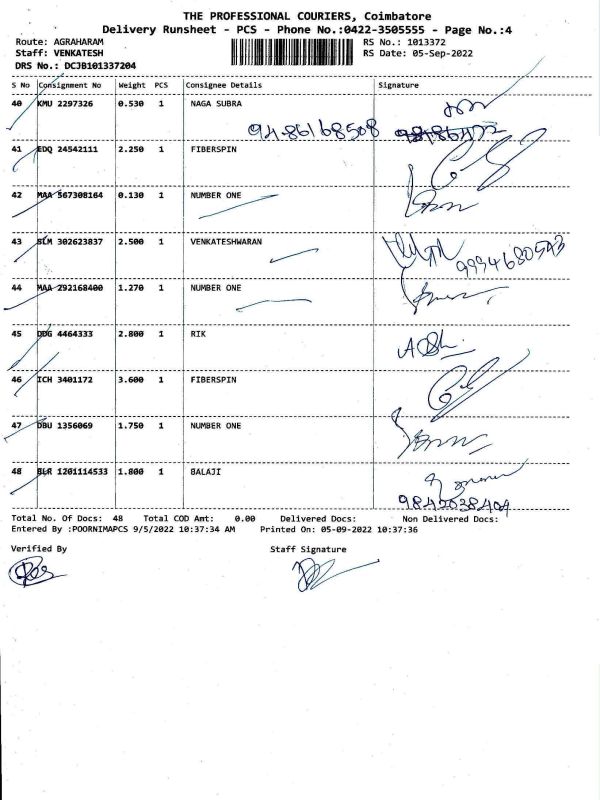 THE PROFESSIONAL COURIERS, Coimbatore
Delivery Runsheet - PCS - Phone No.:0422-3505555 - Page No.:4
Route: AGRAHARAM RS No.: 1013372
Staff: VENKATESH RS Date: 05-Sep-2022
DRS No.: DCJB101337204
S No Consignment No Weight PCS Consignee Details Signature
40 KMU 2297326 0.530 1 NAGA SUBRA
9486168508
41 EDQ 24542111 2.250 1 FIBERSPIN
42 MAA 567308164 0.130 1 NUMBER ONE
43 SLM 302623837 2.500 1 VENKATESHWARAN
9994680543
44 MAA 292168400 1.270 1 NUMBER ONE
45 DDG 4464333 2.800 1 RIK
46 ICH 3401172 3.600 1 FIBERSPIN
47 DBU 1356069 1.750 1 NUMBER ONE
48 BLR 1201114533 1.800 1 BALAJI
Total No. Of Docs: 48 Total COD Amt: 0.00 Delivered Docs: Non Delivered Docs:
Entered By :POORNIMAPCS 9/5/2022 10:37:34 AM Printed On: 05-09-2022 10:37:36
Verified By Staff Signature